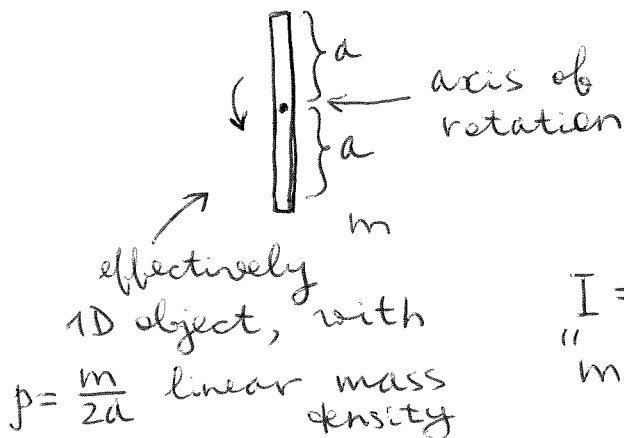 a
axis of
rotation
a
m
effectively
1D object, with
ρ = m/2a linear mass
density
I =
"
m